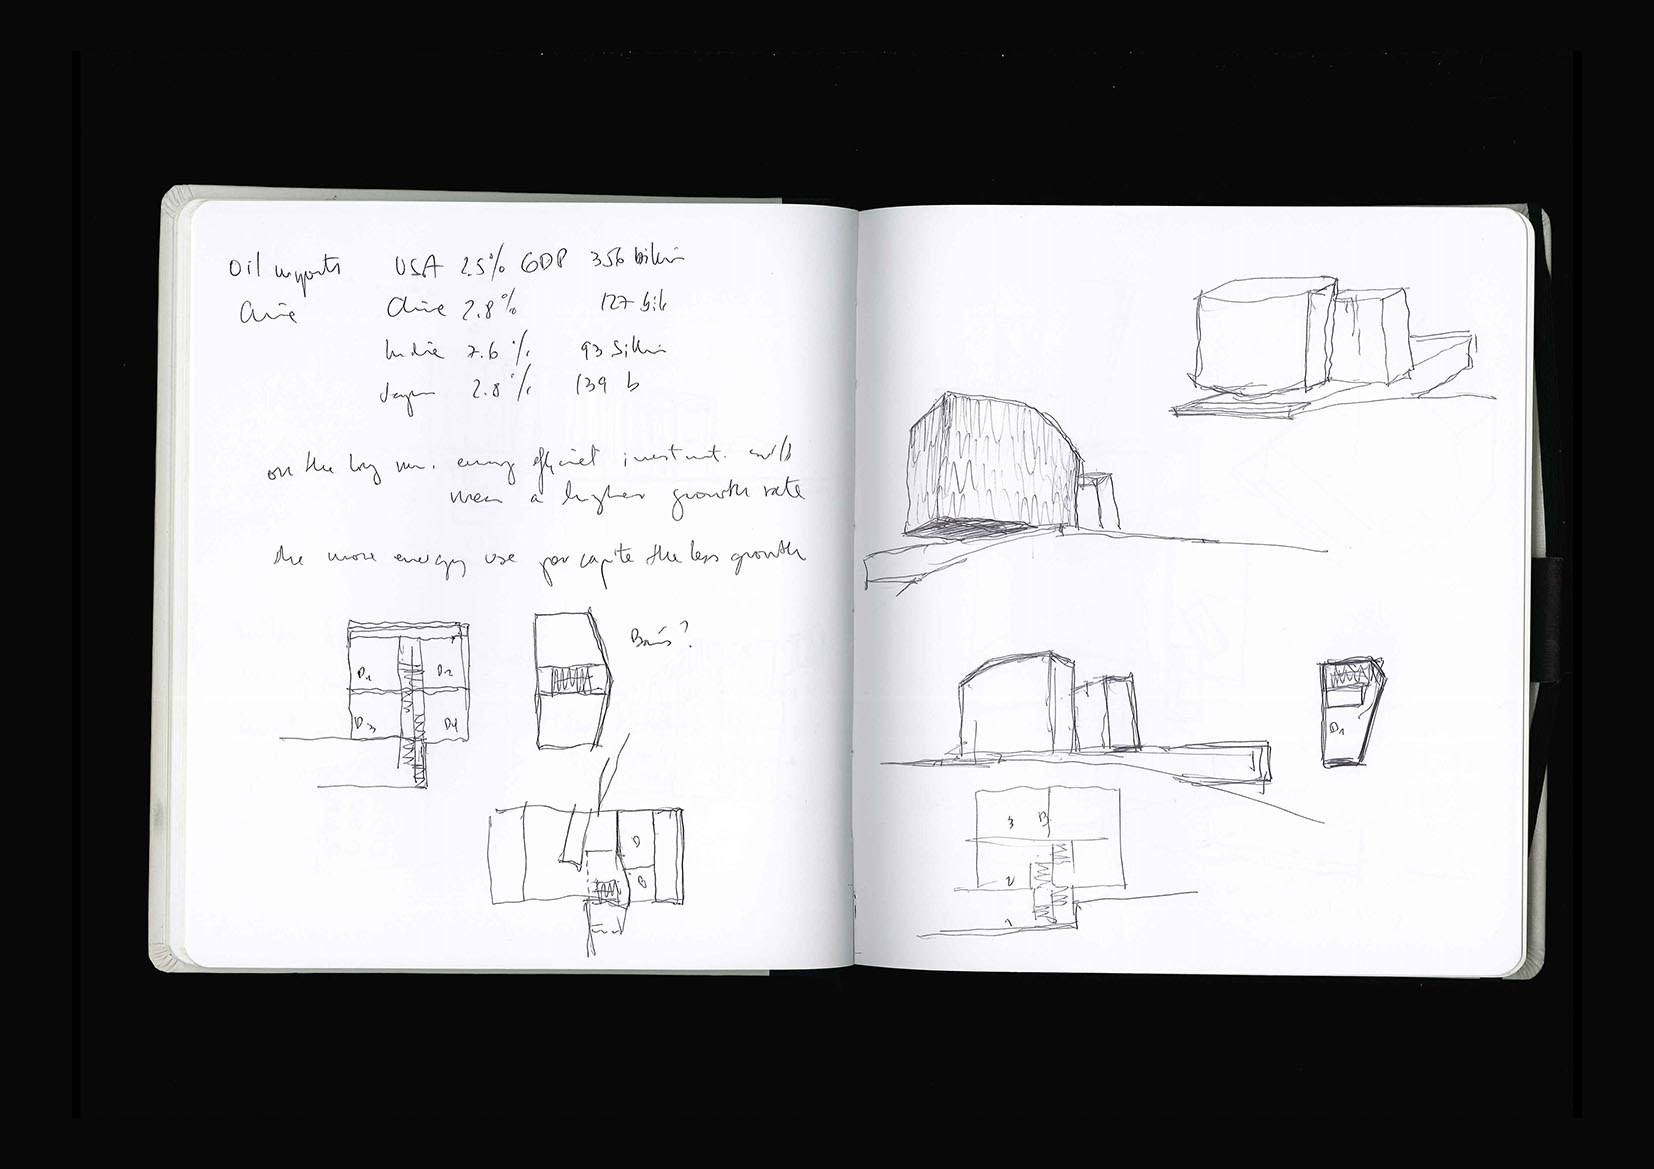 Oil imports USA 2.5% GDP 356 billion
China China 2.8% 127 bil
India 7.6% 93 billion
Japan 2.8% 139 b
on the long run. energy efficient investment. will
mean a higher growth rate
the more energy use per capita the less growth
D1 D2
D3 D4
D
B
D1
3 B
2
1